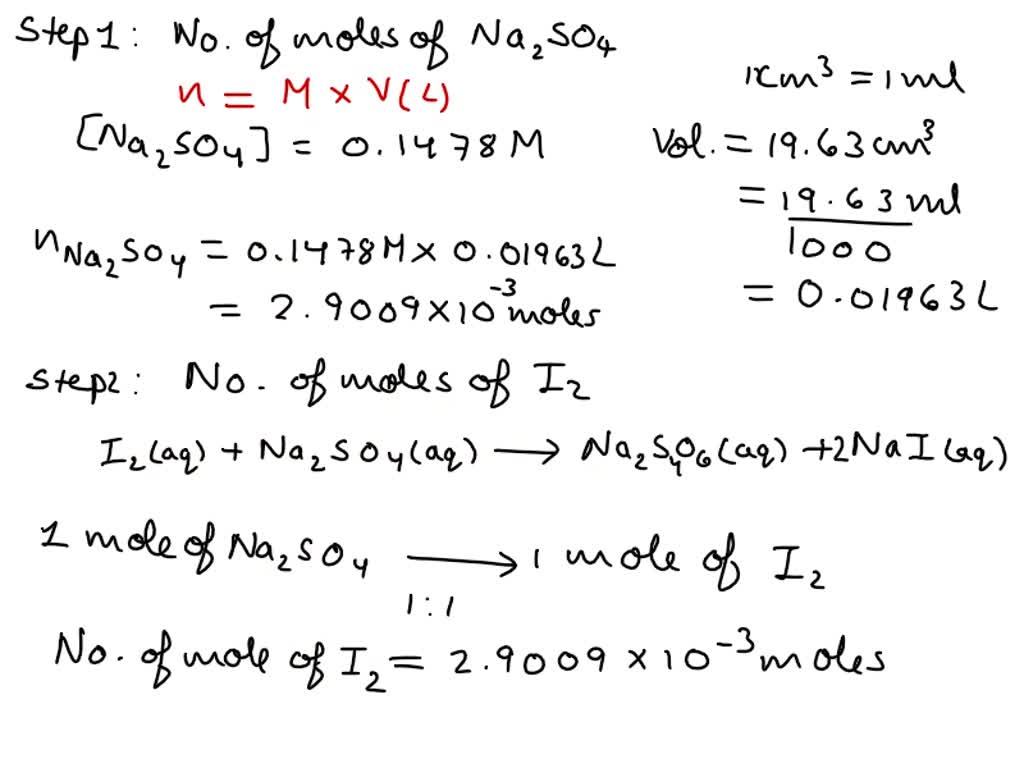 Step 1: No. of moles of Na₂SO₄
n = M × V(L)
[Na₂SO₄] = 0.1478M
1cm³ = 1ml
Vol. = 19.63cm³
= 19.63 ml
1000
= 0.01963L
nNa₂SO₄ = 0.1478M × 0.01963L
= 2.9009×10⁻³ moles
Step2: No. of moles of I₂
I₂(aq) + Na₂SO₄(aq) → Na₂S₄O₆(aq) + 2NaI(aq)
1 mole of Na₂SO₄ → 1 mole of I₂
1:1
No. of mole of I₂ = 2.9009 × 10⁻³ moles